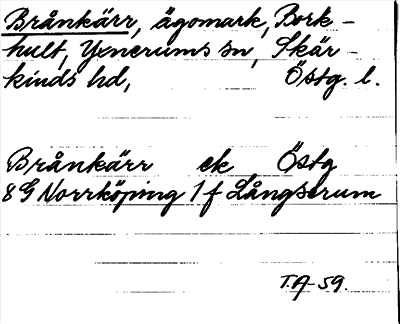 Brånkärr, ägomark, Bork-
hult, Yxnerums sn, Skär-
kinds hd, Östg. l.
Brånkärr ek Östg
8 G Norrköping 1 f Långserum
T.A 59.